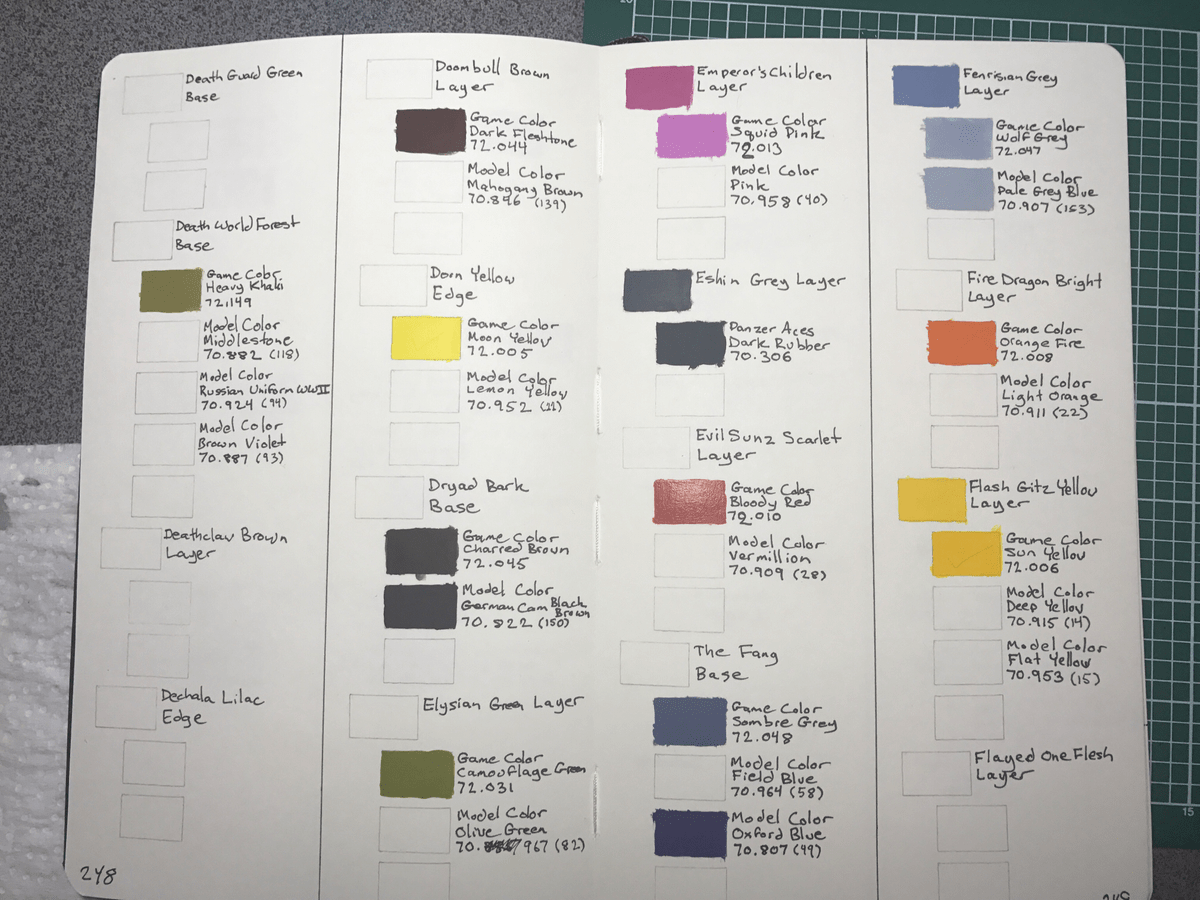 Death Guard Green
Base
Death World Forest
Base
Game Color
Heavy Khaki
72.149
Model Color
Middlestone
70.882 (118)
Model Color
Russian Uniform WWII
70.924 (94)
Model Color
Brown Violet
70.887 (93)
Deathclaw Brown
Layer
Dechala Lilac
Edge
248
Doombull Brown
Layer
Game Color
Dark Fleshtone
72.044
Model Color
Mahogany Brown
70.846 (139)
Dorn Yellow
Edge
Game Color
Moon Yellow
72.005
Model Color
Lemon Yellow
70.952 (11)
Dryad Bark
Base
Game Color
Charred Brown
72.045
Model Color
German Cam Black Brown
70.822 (150)
Elysian Green Layer
Game Color
Camouflage Green
72.031
Model Color
Olive Green
70.967 (82)
Emperor's Children
Layer
Game Color
Squid Pink
72.013
Model Color
Pink
70.958 (40)
Eshin Grey Layer
Panzer Aces
Dark Rubber
70.306
Evil Sunz Scarlet
Layer
Game Color
Bloody Red
72.010
Model Color
Vermillion
70.909 (28)
The Fang
Base
Game Color
Sombre Grey
72.048
Model Color
Field Blue
70.964 (58)
Model Color
Oxford Blue
70.807 (49)
Fenrisian Grey
Layer
Game Color
Wolf Grey
72.047
Model Color
Pale Grey Blue
70.907 (153)
Fire Dragon Bright
Layer
Game Color
Orange Fire
72.008
Model Color
Light Orange
70.911 (22)
Flash Gitz Yellow
Layer
Game Color
Sun Yellow
72.006
Model Color
Deep Yellow
70.915 (14)
Model Color
Flat Yellow
70.953 (15)
Flayed One Flesh
Layer
15